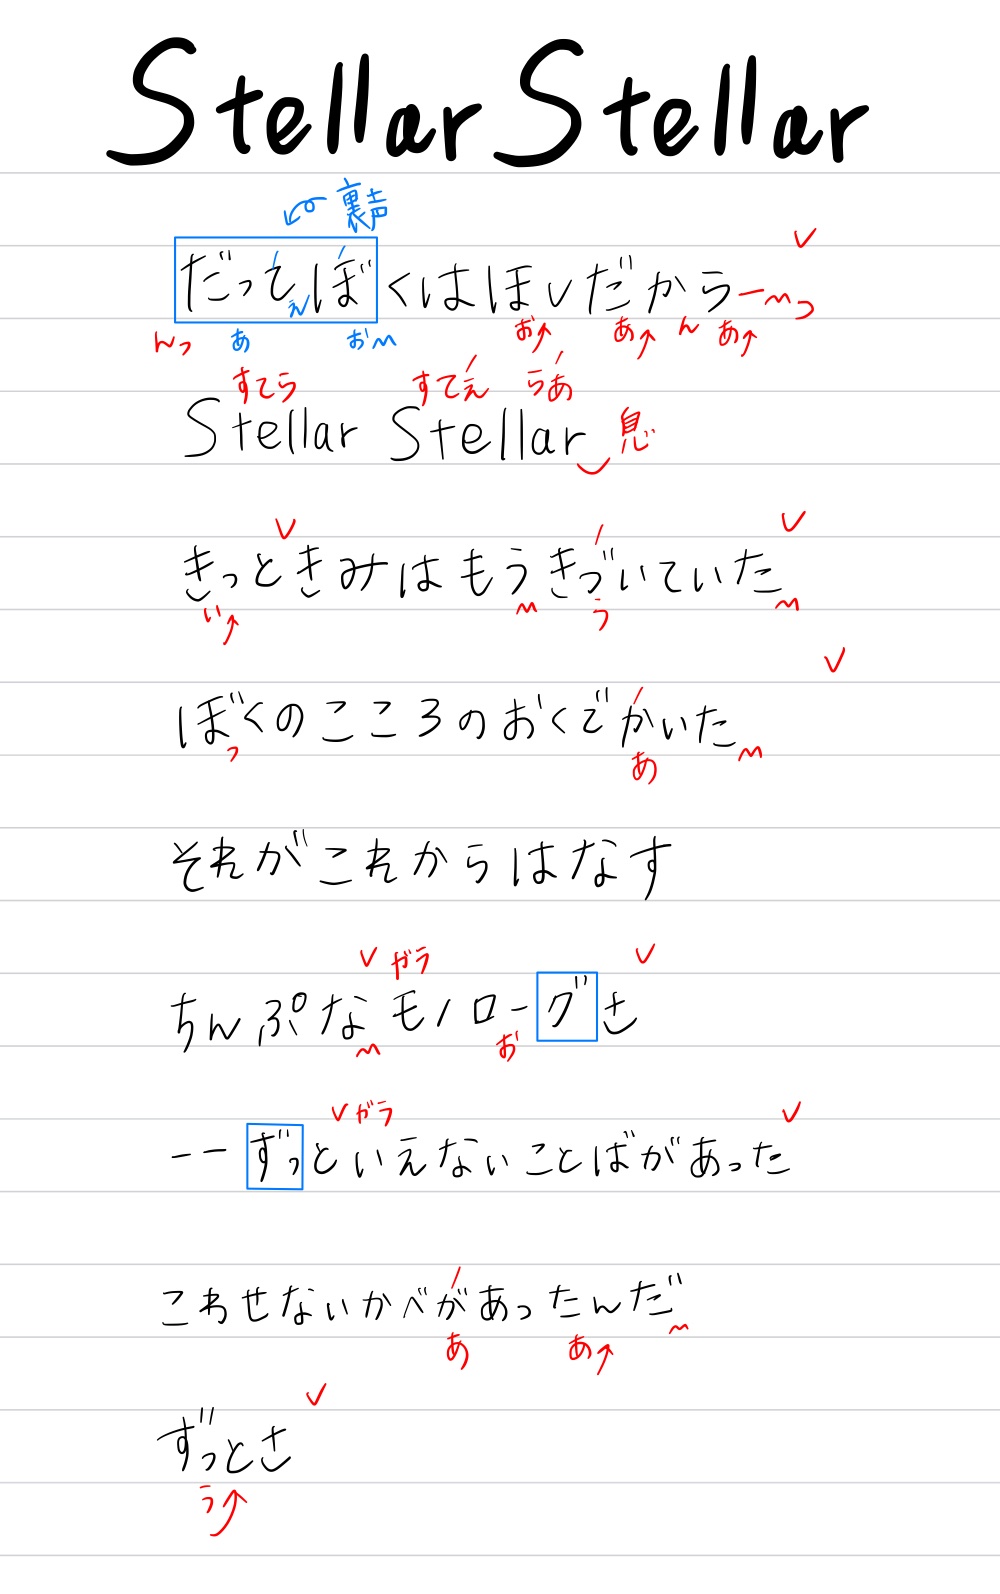 Stellar Stellar
裏声
だってぼくはほしだからーっ
ぇ
んっ あ お お あ ん あ
すてら すてぇ らあ
Stellar Stellar 息
きっときみはもうきづいていた
い う
ぼくのこころのおくでかいた
っ あ
それがこれからはなす
ガラ
ちんぷなモノローグさ
お
ガラ
ーーずっといえないことばがあった
こわせないかべがあったんだ
あ あ
ずっとさ
う